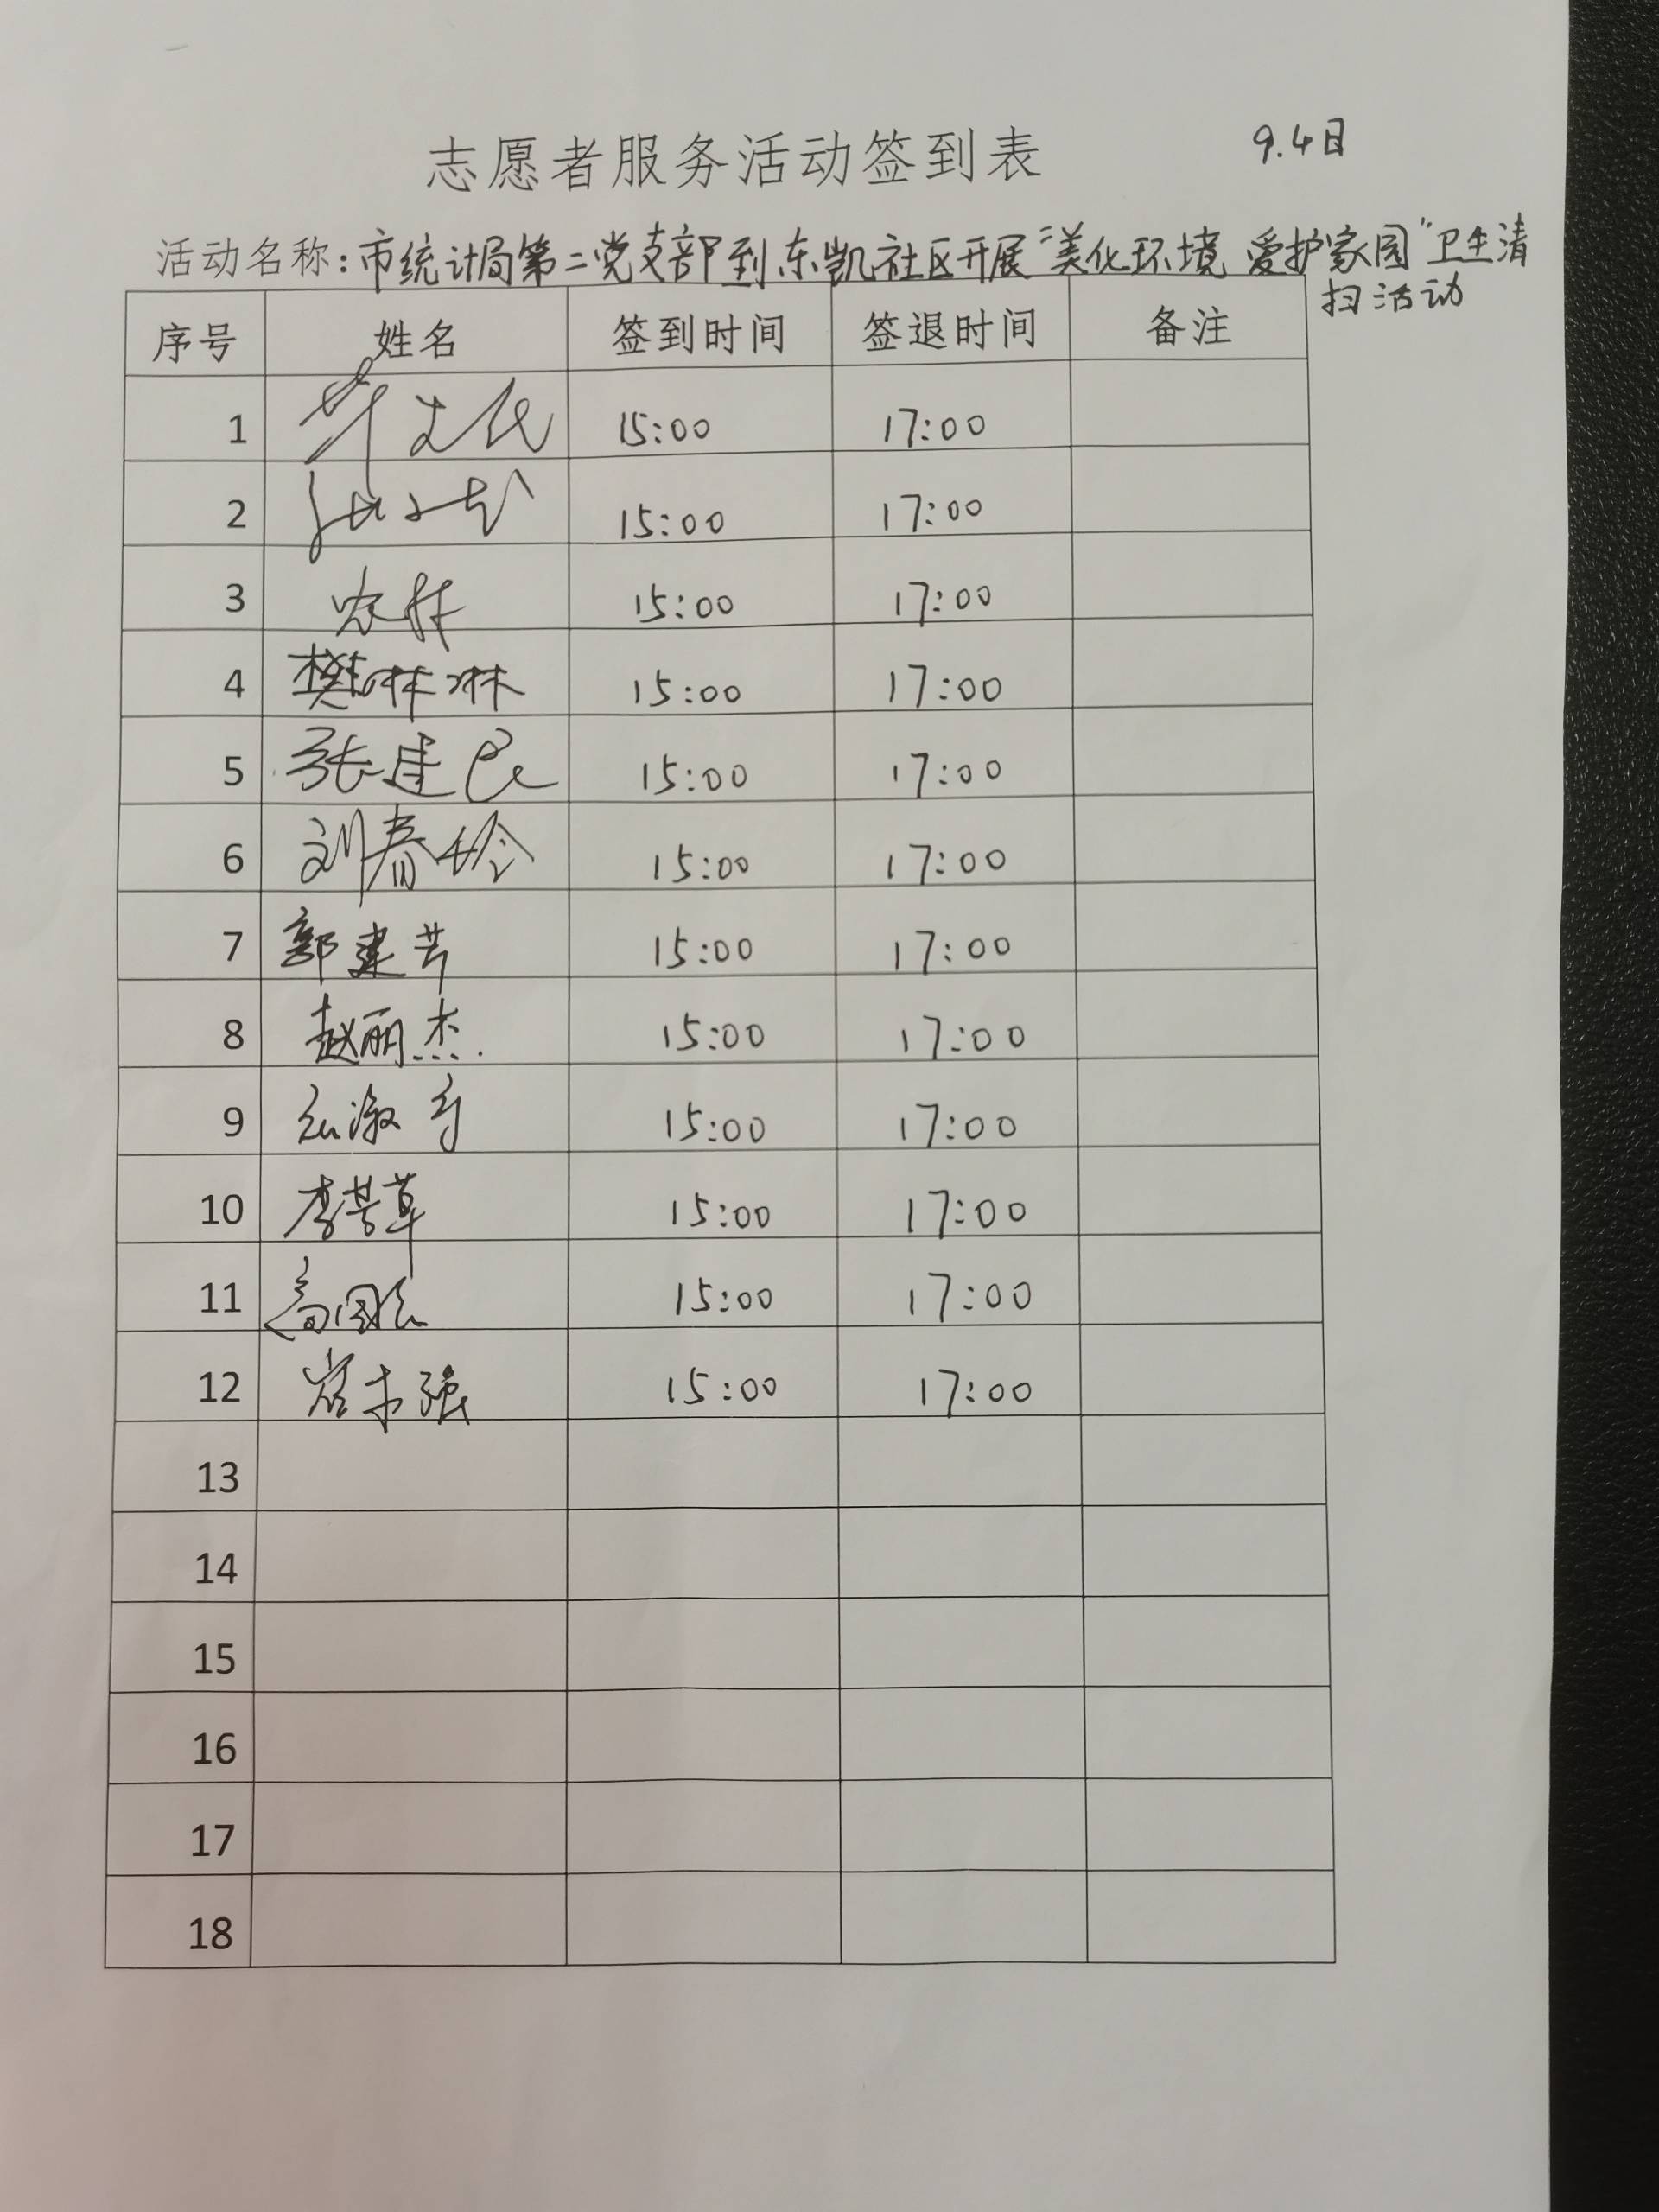 9.4日
志愿者服务活动签到表
活动名称:市统计局第二党支部到东凯社区开展“美化环境 爱护家园”卫生清
扫活动
序号 姓名 签到时间 签退时间 备注
1 15:00 17:00
2 15:00 17:00
3 15:00 17:00
4 樊琳琳 15:00 17:00
5 张建良 15:00 17:00
6 刘春玲 15:00 17:00
7 郭建芳 15:00 17:00
8 赵丽杰 15:00 17:00
9 15:00 17:00
10 李芳草 15:00 17:00
11 15:00 17:00
12 15:00 17:00
13
14
15
16
17
18